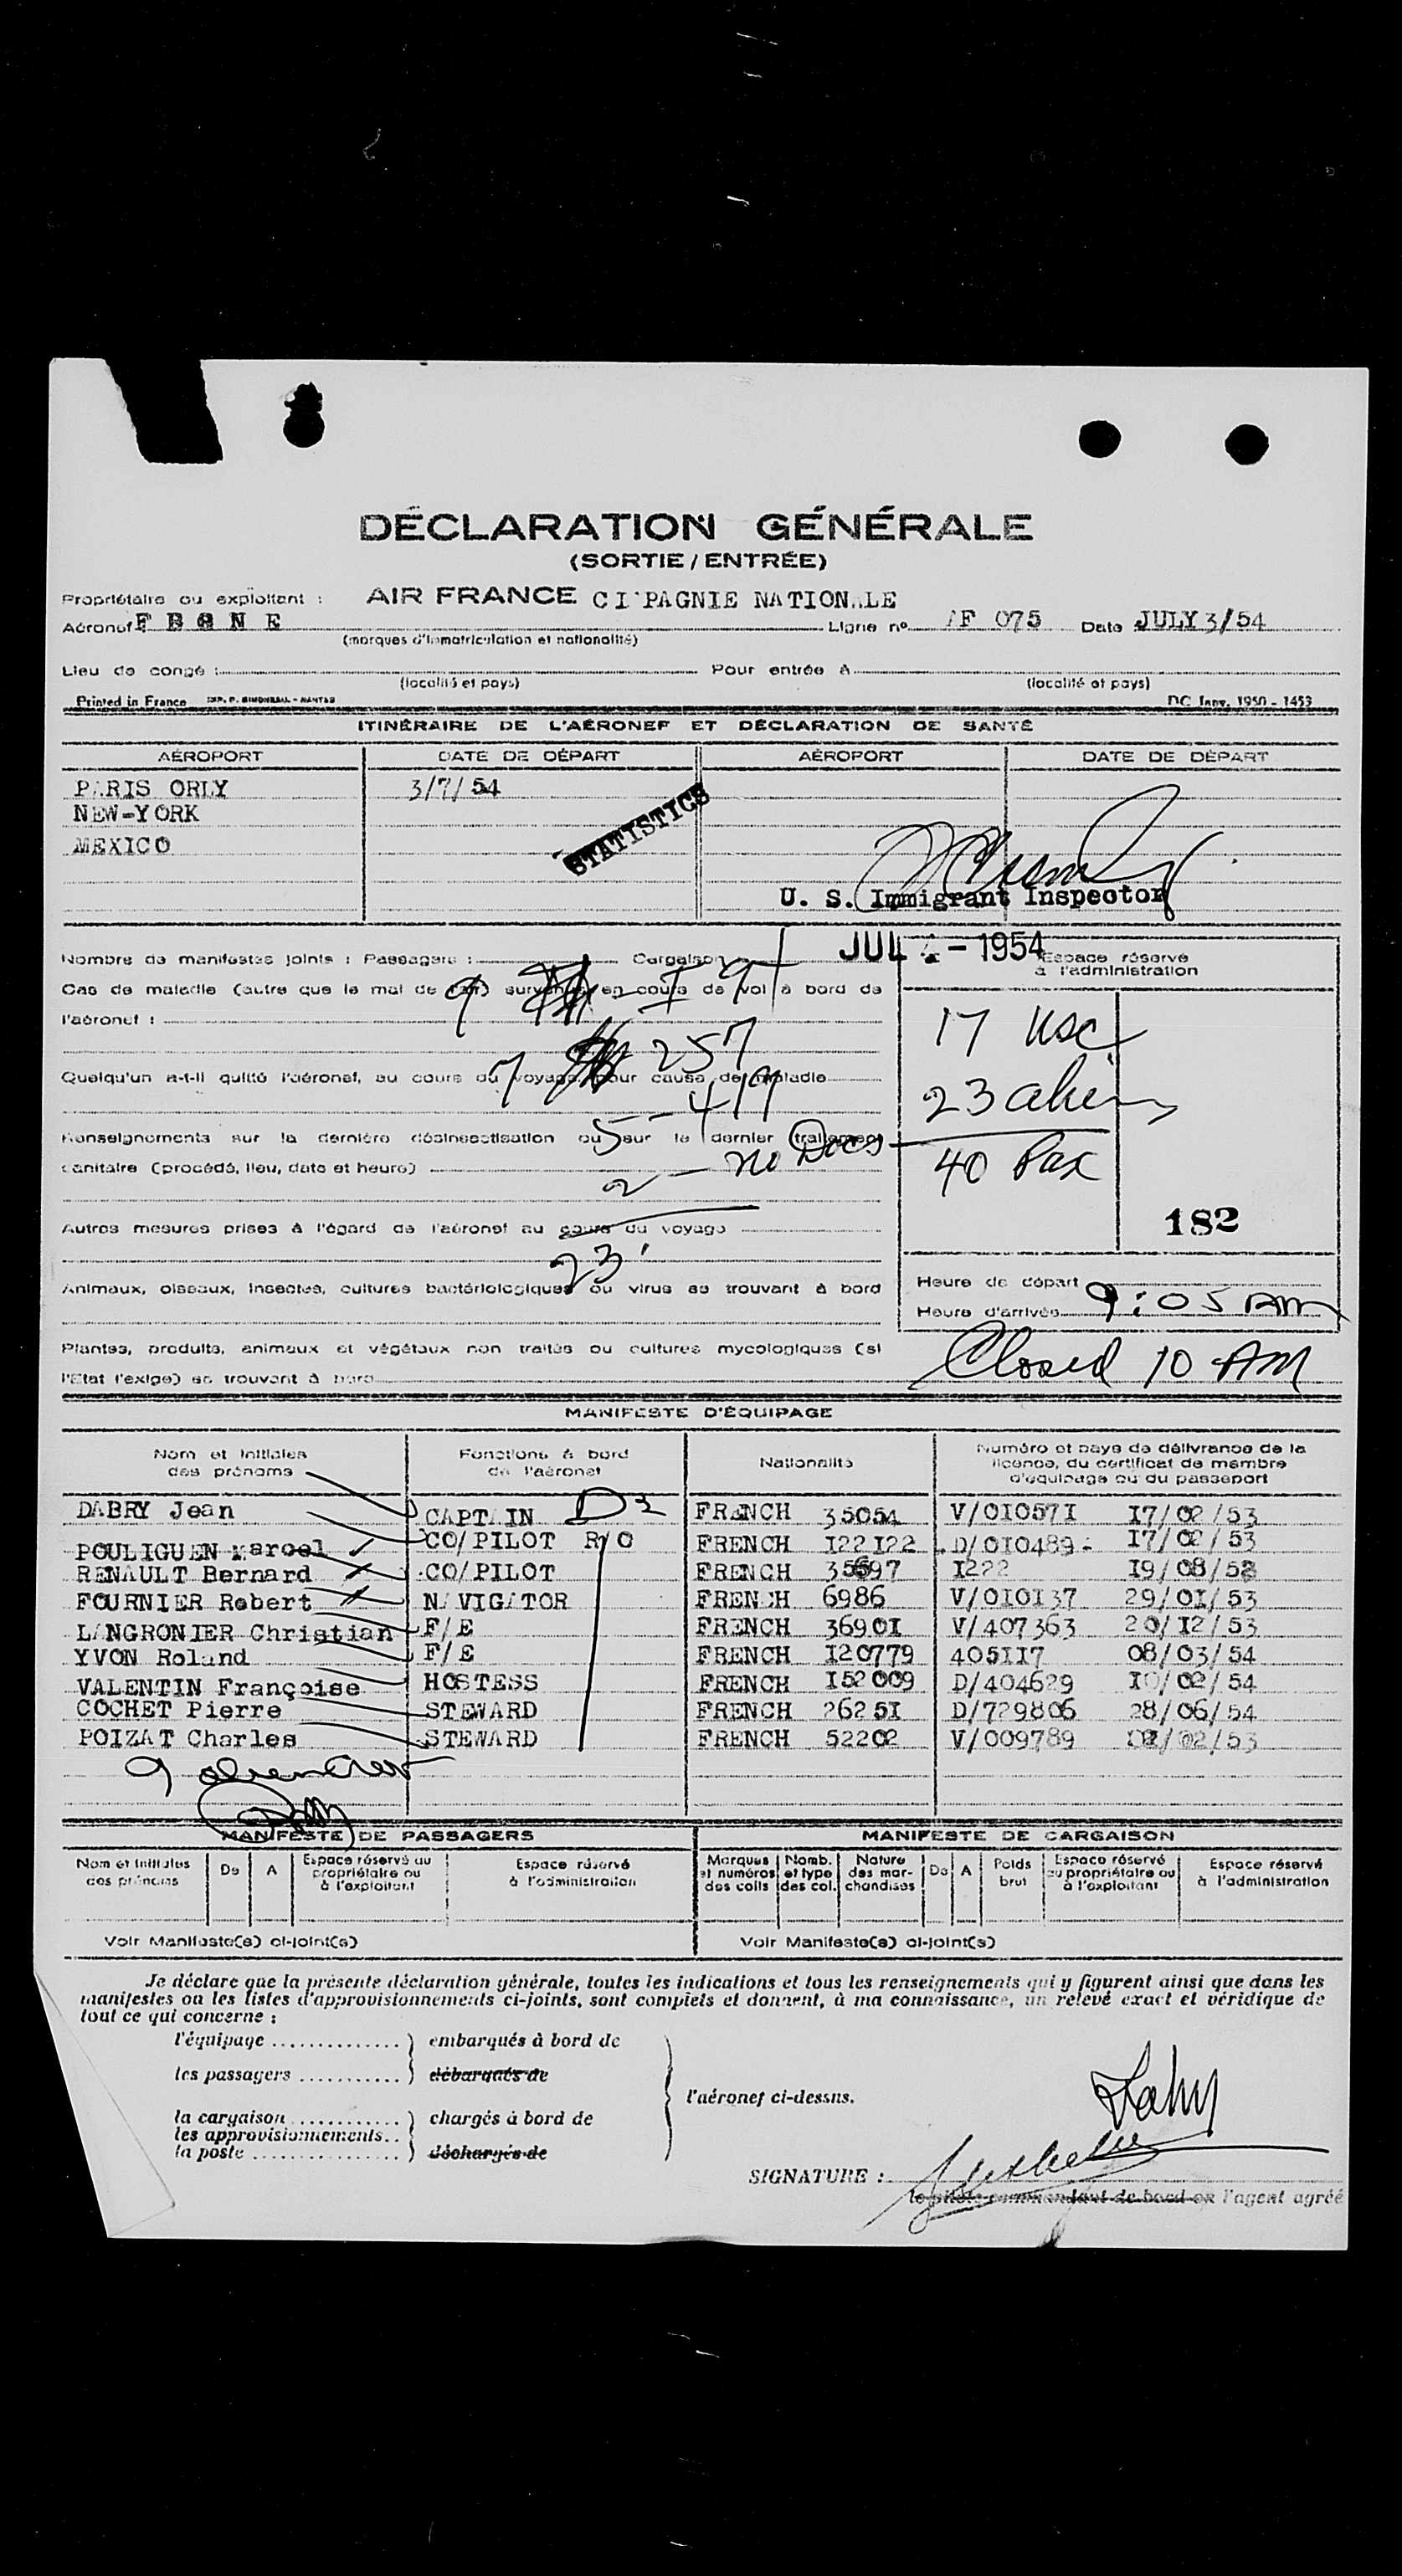 DÉCLARATION GÉNÉRALE
(SORTIE / ENTRÉE)
Propriétaire ou exploitant : AIR FRANCE CI PAGNIE NATIONALE
Aéronef F B G N E Ligne no AF 075 Date JULY 3/54
(marques d'immatriculation et nationalité)
Lieu de congé : Pour entrée à
(localité et pays) (localité et pays)
Printed in France DC Janv. 1950 - 1453
ITINÉRAIRE DE L'AÉRONEF ET DÉCLARATION DE SANTÉ
AÉROPORT DATE DE DÉPART AÉROPORT DATE DE DÉPART
PARIS ORLY 3/7/54
NEW-YORK
MEXICO
STATISTICS
U. S. Immigrant Inspector
JUL 4 - 1954
Nombre de manifestes joints : Passagers : Cargaison
Espace réservé
à l'administration
Cas de maladie (autre que le mal de l'air) survenus en cours de vol à bord de
l'aéronef :
9 I 94
17 USC
7 257
Quelqu'un a-t-il quitté l'aéronef, au cours du voyage, pour cause de maladie
5 - 419
23 aliens
Renseignements sur la dernière désinsectisation ou sur le dernier traitement
sanitaire (procédé, lieu, date et heure)
2 - no Docs
40 Pax
182
Autres mesures prises à l'égard de l'aéronef au cours du voyage
23
Animaux, oiseaux, insectes, cultures bactériologiques ou virus se trouvant à bord
Heure de départ
Heure d'arrivée 9:05 AM
Plantes, produits, animaux et végétaux non traités ou cultures mycologiques (si
l'Etat l'exige) se trouvant à bord
Closed 10 AM
MANIFESTE D'ÉQUIPAGE
Nom et initiales des prénoms Fonctions à bord de l'aéronef Nationalité Numéro et pays de délivrance de la licence, du certificat de membre d'équipage ou du passeport
DABRY Jean CAPTAIN D2 FRENCH 35054 V/010571 17/02/53
POULIGUEN Marcel CO/PILOT R/O FRENCH I22I22 D/010489 17/02/53
RENAULT Bernard CO/PILOT FRENCH 35697 I222 19/08/52
FOURNIER Robert NAVIGATOR FRENCH 6986 V/010137 29/01/53
LANGRONIER Christian F/E FRENCH 36901 V/407363 20/12/53
YVON Roland F/E FRENCH I20779 405117 08/03/54
VALENTIN Françoise HOSTESS FRENCH I52009 D/404629 10/02/54
COCHET Pierre STEWARD FRENCH 26251 D/729806 28/06/54
POIZAT Charles STEWARD FRENCH 52202 V/009789 02/53
9 alien crew
MANIFESTE DE PASSAGERS MANIFESTE DE CARGAISON
Nom et initiales des prénoms De A Espace réservé au propriétaire ou à l'exploitant Espace réservé à l'administration Marques et numéros des colis Nomb. et type des col. Nature des marchandises De A Poids brut Espace réservé au propriétaire ou à l'exploitant Espace réservé à l'administration
Voir Manifeste(s) ci-joint(s) Voir Manifeste(s) ci-joint(s)
Je déclare que la présente déclaration générale, toutes les indications et tous les renseignements qui y figurent ainsi que dans les
manifestes ou les listes d'approvisionnements ci-joints, sont complets et donnent, à ma connaissance, un relevé exact et véridique de
tout ce qui concerne :
l'équipage .............. ) embarqués à bord de
les passagers ........... ) débarqués de
l'aéronef ci-dessus.
la cargaison ............ ) chargés à bord de
les approvisionnements..
la poste ................ ) déchargés de
SIGNATURE :
le pilote commandant de bord ou l'agent agréé